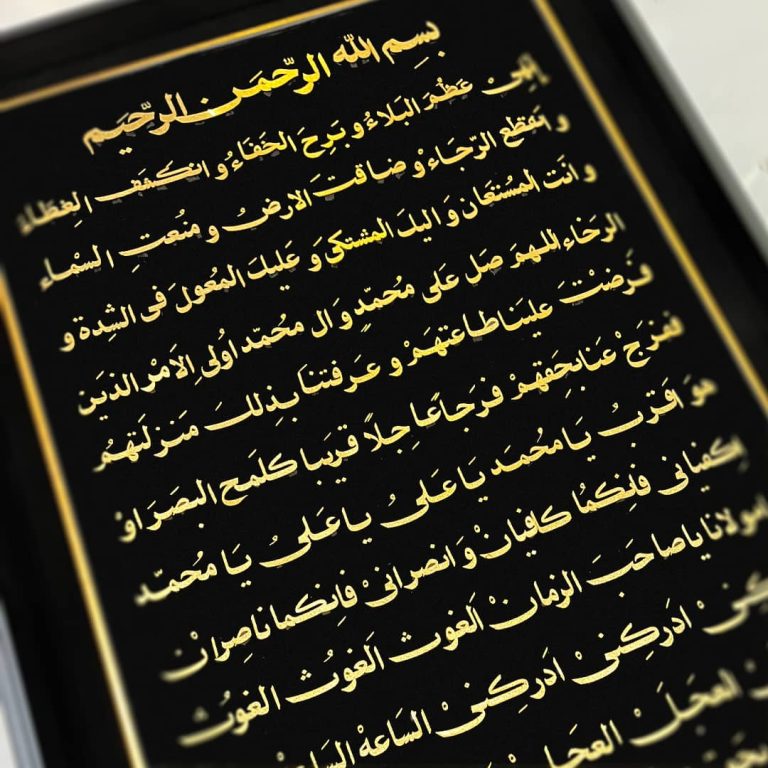 بسِمِ اللّه الرحّمَن الرحِّيَم
إلهِیْ عَظُمَ البَلاءُ و بَرِحَ الخَفَاءُ و انکشَفِ الغِطَاءُ
و انقطع الرّجَاءُ و ضاقتَ الارضُ و منُعتِ السْماء
و انَت المُستعَان وَ اليكَ المشتکی وَ عَليكَ المُعولَ فی الشِدة و
الرخاء اللهمَ صَلِ عَلی محُمّدٍ وَ ال محُمّد اوُلیِ الاَمْرِ الذيَن
فَرضْتَ علينَا طاعَتهَمْ و عَرفتناَ بِذِلكَ مَنزلَتهمُ
ففرجَ عَنا بحِقهمْ فرَجاً عَاجِلاً قرَيبا کلمَح البصَرَ اوْ
هوَ اقَربُ يَا محُمَد يَا عَلیُ يا عَلیُ يَا محُمّد
اِکفيانی فاِنکمُا کافيانْ وَ انصرانیْ فاِنکما ناصِرانْ
مولانا يا صاحَبَ الزمانْ الغوث الغوُث الغوُث
ادَرکِنیْ ادَرکِنیْ السَاعهْ
العجَلَ العجَل